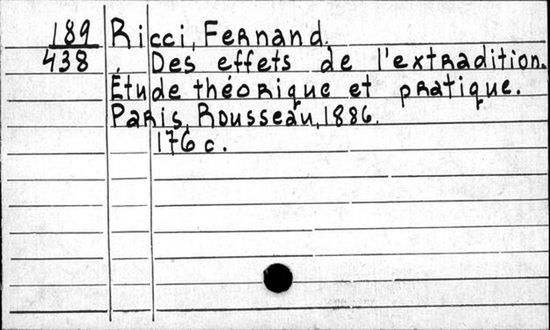 189 Ricci, Fernand.
438 Des effets de l'extradition.
Étude théorique et pratique.
Paris, Rousseau, 1886.
176 c.